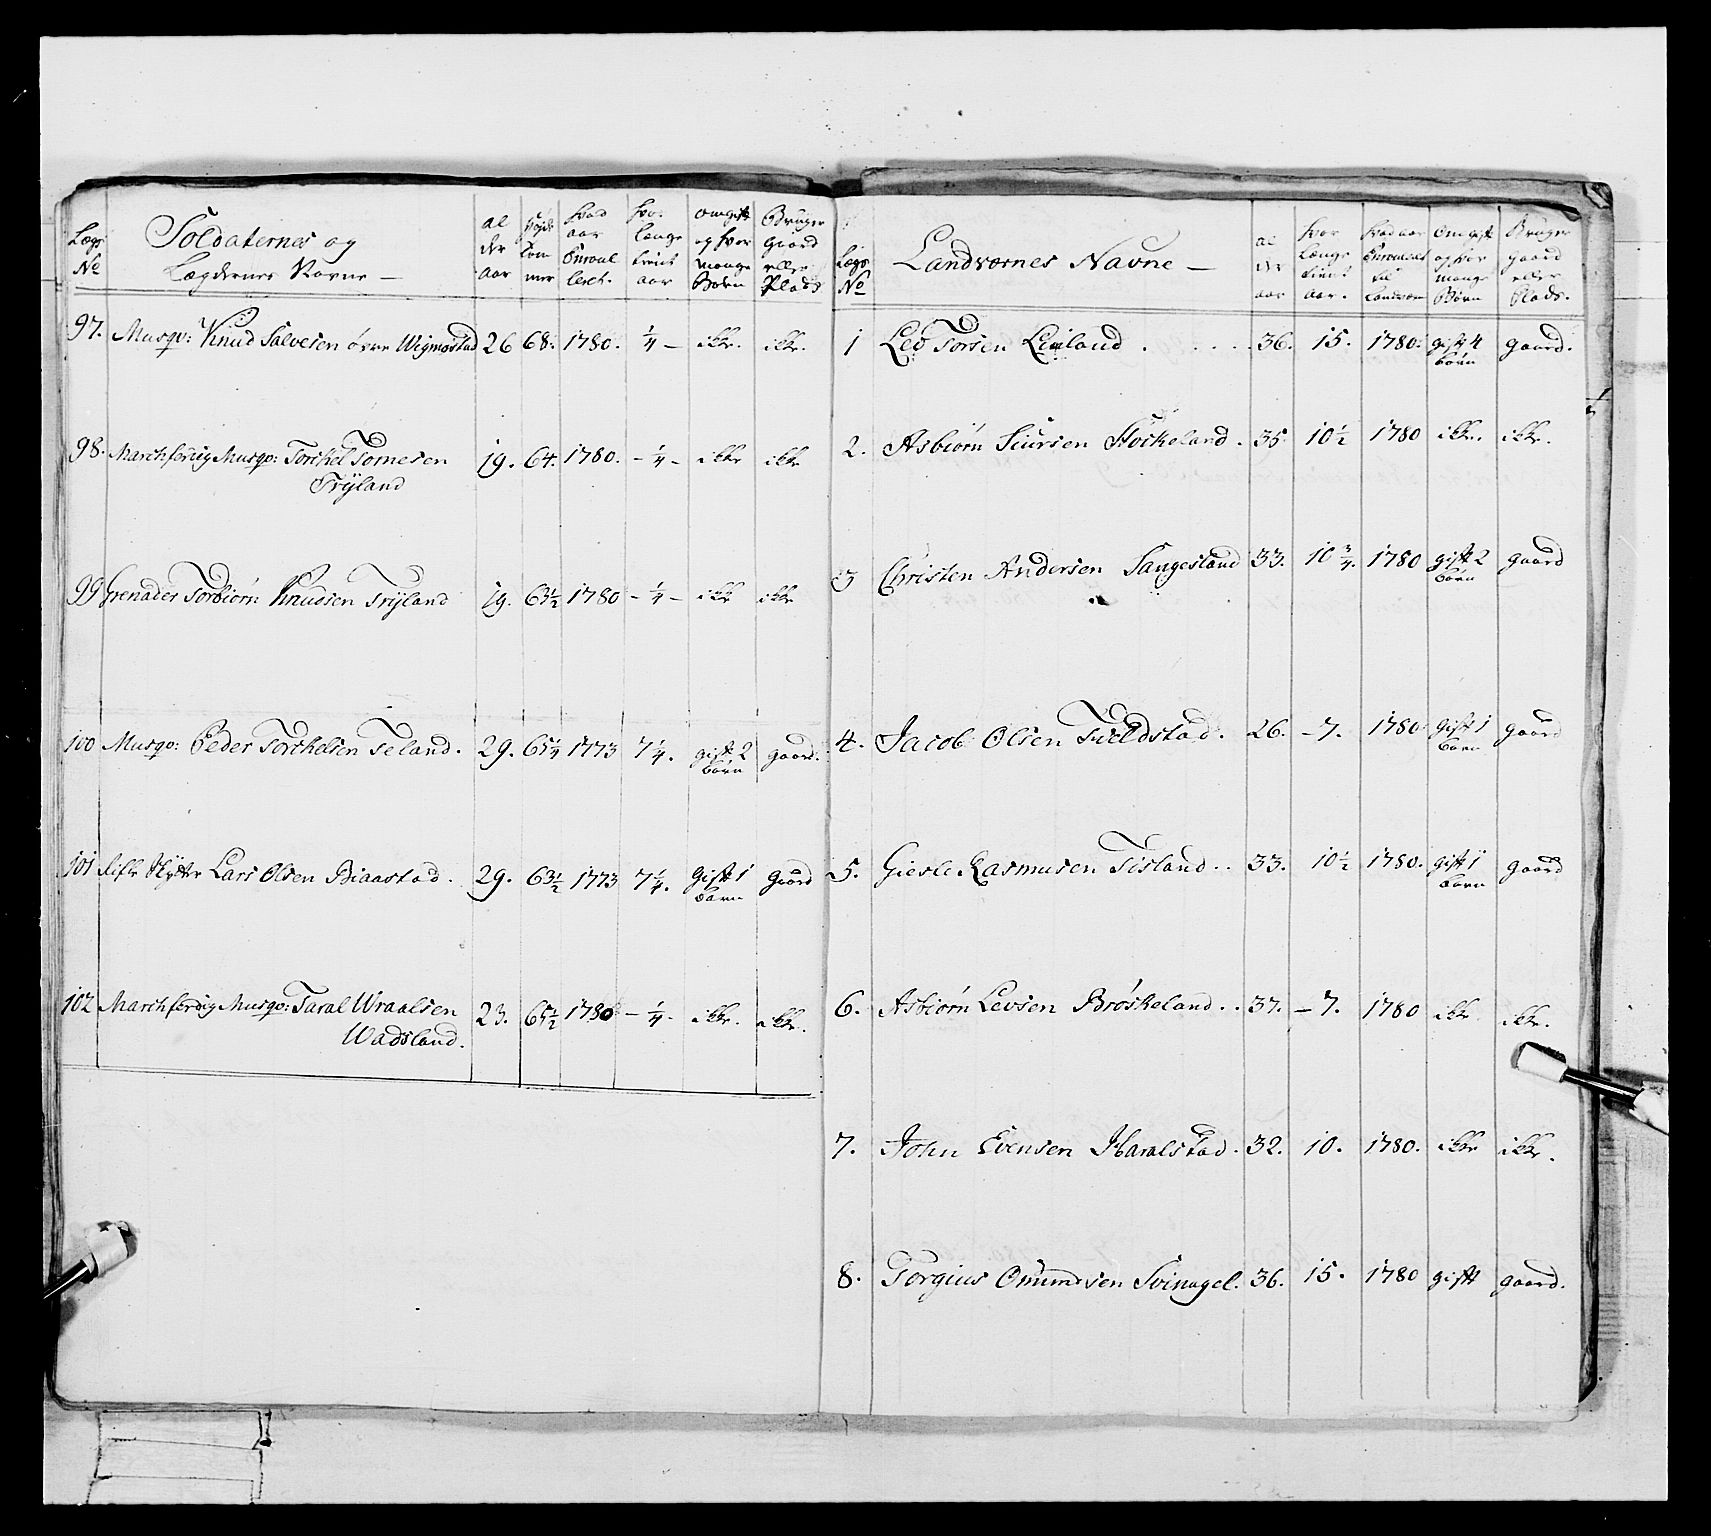 Lægs No
Soldaternes og Lægdernes Navne —
al der aar
Høyde Tom mer
Hvad aar Enroul leret.
Hvor længe tient aar
Om gift og hvor mange Børn
Bruger Gaard eller Plads
97. Musqr: Knud Salvesen øvre Wigmostad 26 68. 1780. ¼ — ikke. ikke.
98. Marchferdig Musqr: Torkel Tomesen 19. 64. 1780. — ¼ — ikke ikke
Trÿland
99 Grenader Torbiørn Knudsen Trÿland 19. 63½ 1780 — ¼ — ikke ikke
100 Musqr: Peder Torkelsen Teland. 29. 65¼ 1773 7¼. gift 2 gaard.
børn
101 Rifle Skÿtte Lars Olsen Biaastad. 29. 63½ 1773 7¼. gift 1 gaard
barn
102 Marchferdig Musqr: Taral Wraalsen 23. 65½ 1780 — ¼ — ikke. ikke.
Wadsland.
Lægs No
Landværnes Navne —
al der aar
Hvor Længe tient aar.
Hvad aar Enroulert til Landværn
Om gift og hvor mange Børn
Bruger gaard eller Plads.
1 Leo Torsen Leeland . . . . 36. 15. 1780. gift 4 gaard.
børn
2. Asbiørn Siursen Høskeland. 35. 10½ 1780 ikke. ikke.
3 Christen Andersen Sangesland 33. 10¾. 1780 gift 2 gaard
børn
4. Jacob Olsen Tveldstad. 26. — 7. 1780. gift 1 gaard
barn
5. Giesle Rasmusen Tisland.. 33. 10½ 1780. gift 1 gaard
barn
6. Asbiørn Levsen Brøskeland.. 37. — 7. 1780 ikke ikke.
7. John Evensen Haralstad. 32. 10. 1780. ikke ikke.
8. Torgius Omundsen Svinagel. 36. 15. 1780 gift gaard.